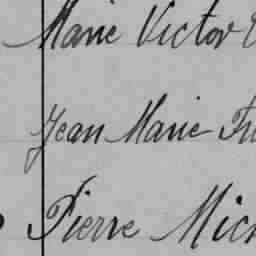 Marie Victor
Jean Marie
Pierre